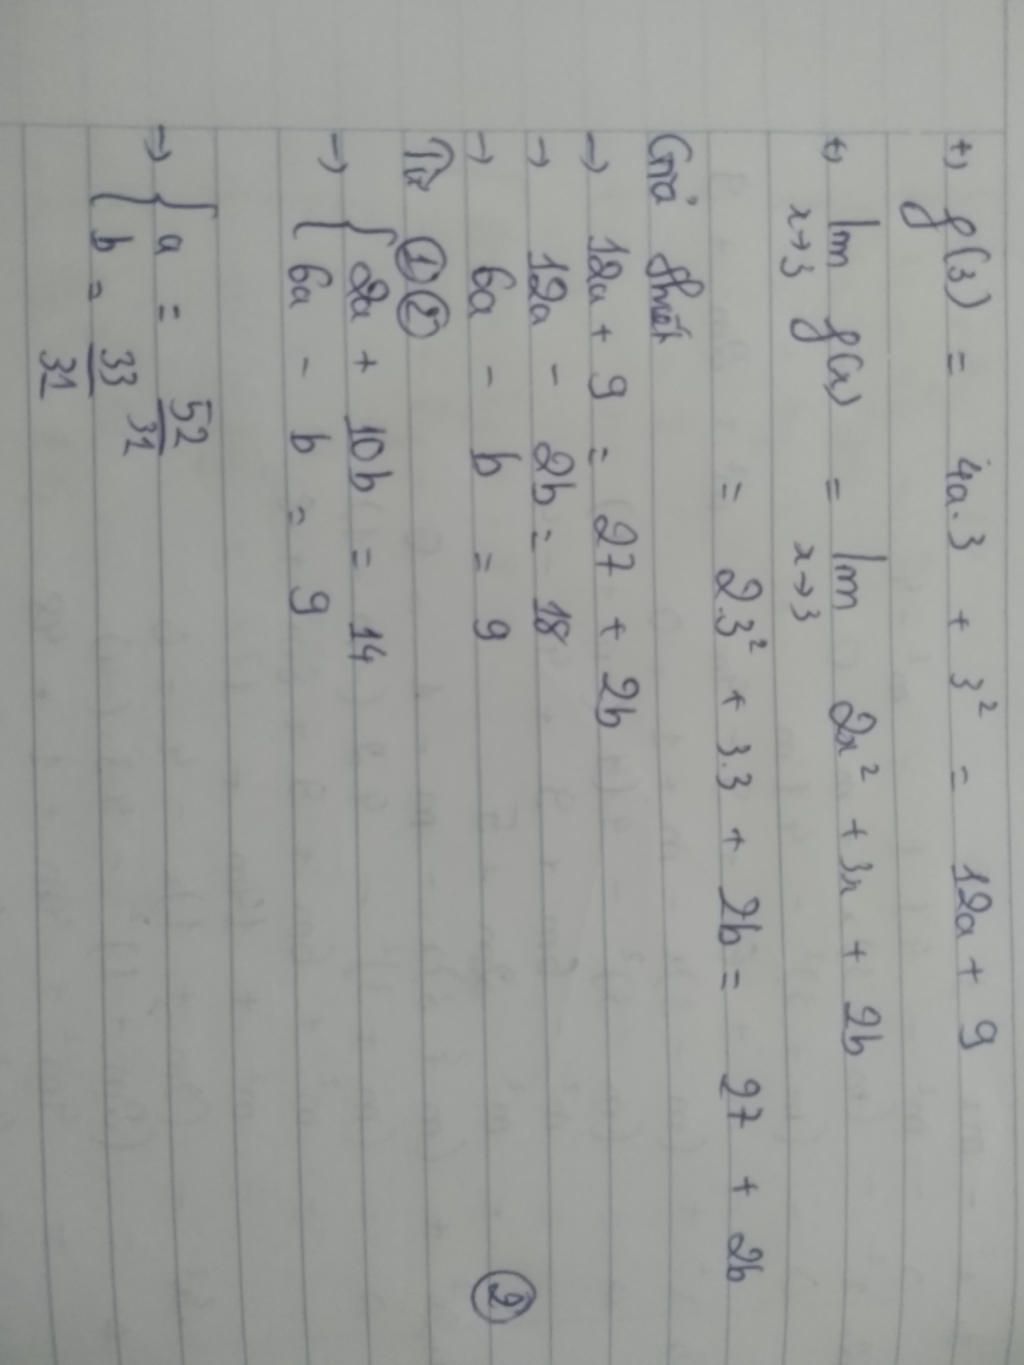 +) f(3) = 4a.3 + 3² = 12a + 9
+) lim f(x) = lim 2x² + 3x + 2b
x→3 x→3
= 2.3² + 3.3 + 2b = 27 + 2b
Giả thiết
→ 12a + 9 = 27 + 2b
→ 12a - 2b = 18
→ 6a - b = 9 ②
Từ ① ②
→ { 2a + 10b = 14
{ 6a - b = 9
→ { a = 52/31
{ b = 33/31